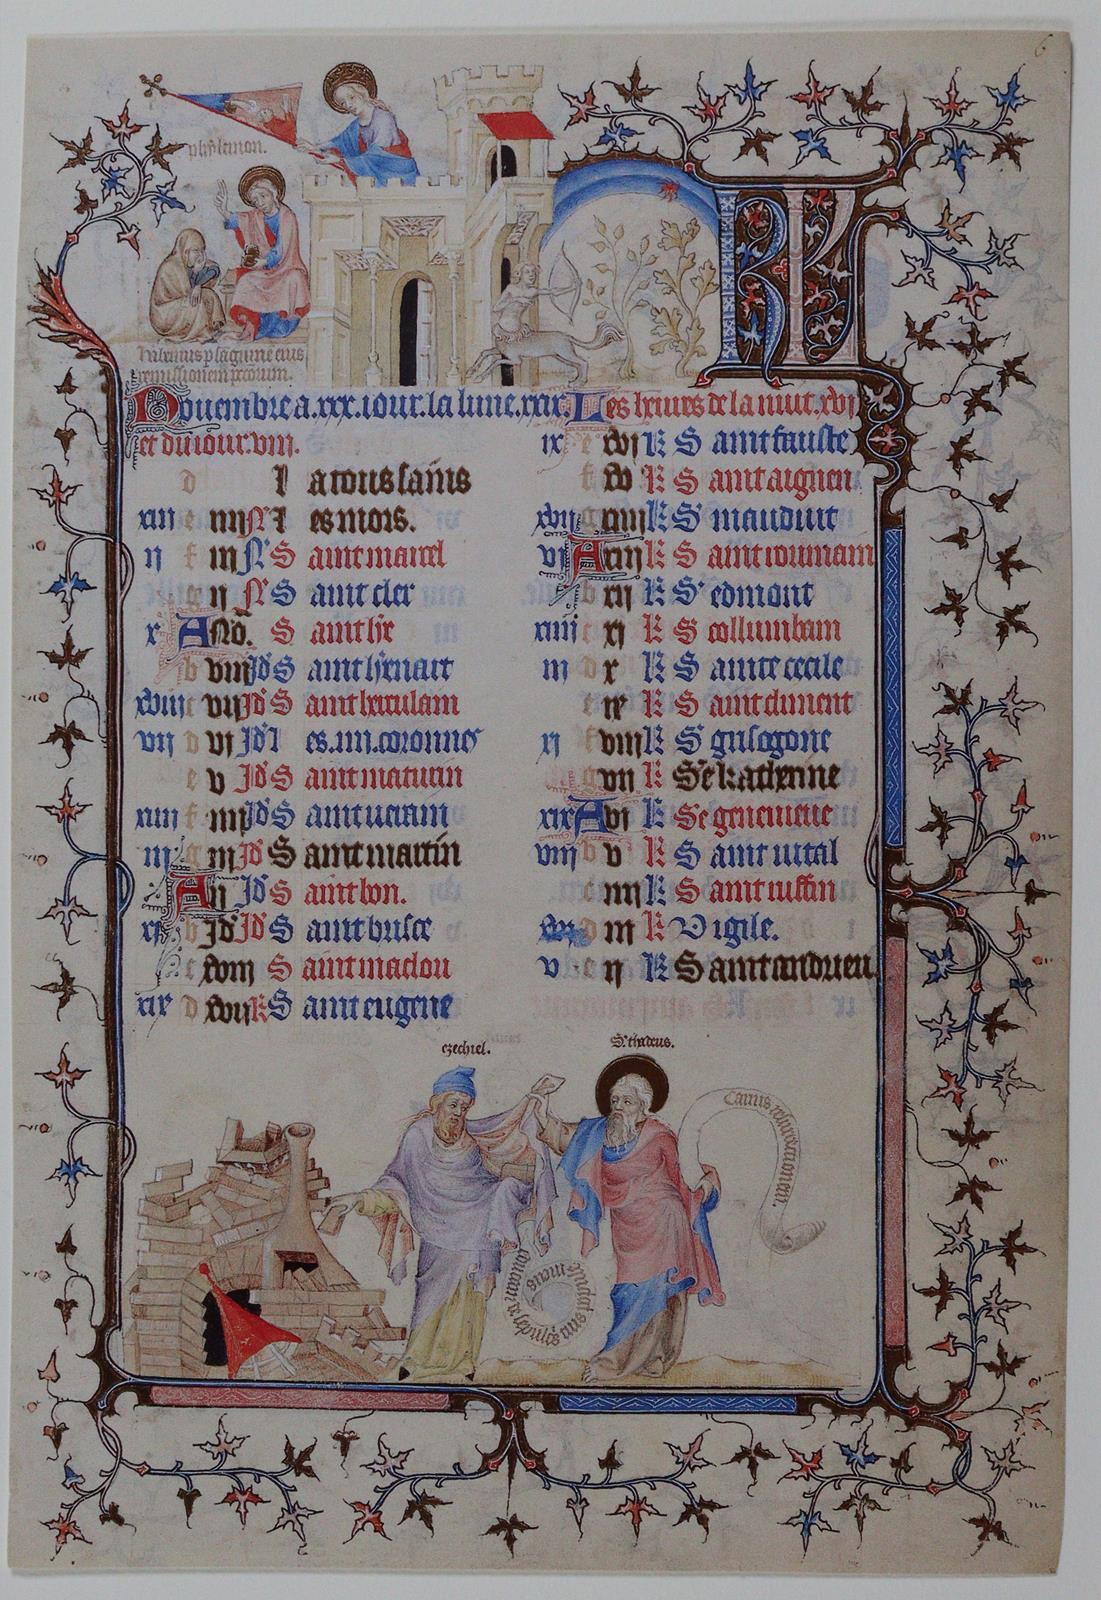 6
phylemon.
hilemus plagume eius
remissionem peccorum.
KL
Novembre a .xxx. iour. la lune .xxix. Les heures de la nuit. xvi
et du iour. viii.
d La toussains
xiii e iiii N Les mors.
ii f iii N Saint marcel
g ii N Saint cler
x A No. Saint lie
b viii Id Saint lienart
xviii c vii Id Saint herculam
vii d vi Id Les .iiii. coronnes
e v Id Saint maturin
xiiii f iiii Id Saint veram
iii g iii Id Saint martin
A ii Id Saint bon.
xi b Id Id Saint brisce
c xviii Saint maclou
xix d xvii K Saint eugene
ix e xvi K Saint fauste
f xv K Saint aignen
xvii g xiiii K S mauduit
vi A xiii K Saint roumam
b xii K S' edmont
xiiii c xi K S collumbam
iii d x K Sainte cecile
e ix K Saint climent
xi f viii K S' grisogone
g vii K Se katherine
xix A vi K Se genevieve
viii b v K Saint vital
c iiii K Saint ruffin
d iii K Vigile.
v e ii K Saint andrieu.
ezechiel.
S. thadeus.
Carnis resurrectionem.